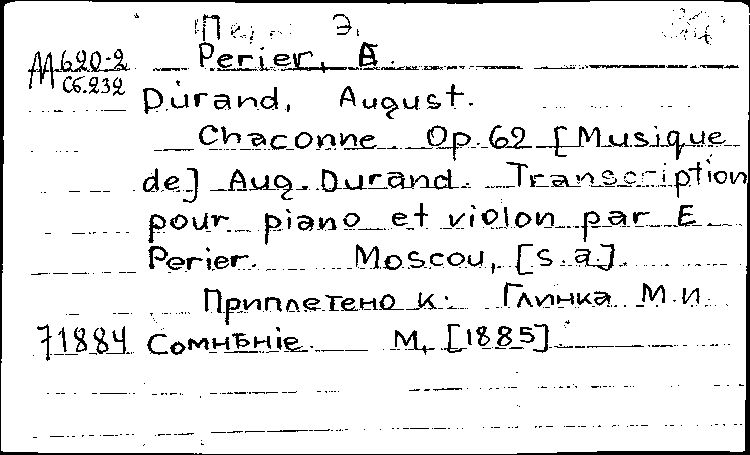 Э.
М620-2 Perier, E.
Сб.232
Durand, August.
Chaconne Op.62 [Musique
de] Aug. Durand. Transcription
pour piano et violon par E.
Perier. Moscou, [s.a.].
Приплетено к: Глинка М.И.
71884 Сомнѣніе. М, [1885].